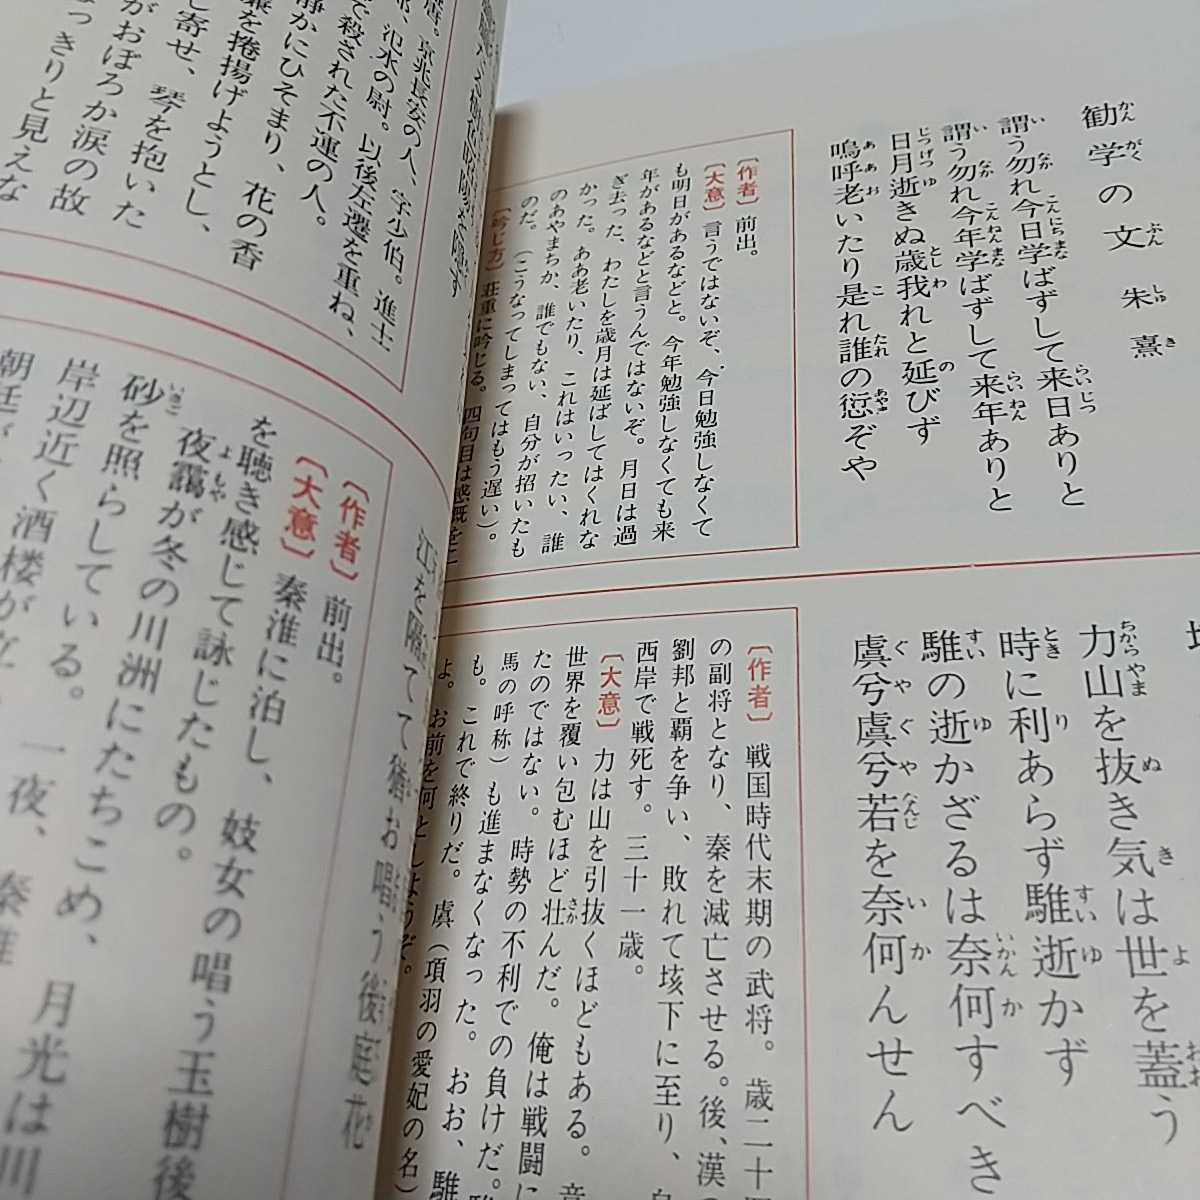 勧学の文　朱熹
謂う勿れ今日学ばずして来日ありと
謂う勿れ今年学ばずして来年ありと
日月逝きぬ歳我れと延びず
嗚呼老いたり是れ誰の愆ぞや
〔作者〕前出。
〔大意〕言うではないぞ、今日勉強しなくて
も明日があるなどと。今年勉強しなくても来
年があるなどと言うんではないぞ。月日は過
ぎ去った、わたしを歳月は延ばしてはくれな
かった。ああ老いたり、これはいったい、誰
のあやまちか、誰でもない、自分が招いたも
のだ。（こうなってしまってはもう遅い）。
〔吟じ方〕荘重に吟じる。四句目は感慨を
力山を抜き気は世を蓋う
時に利あらず騅逝かず
騅の逝かざるは奈何すべき
虞兮虞兮若を奈何んせん
〔作者〕戦国時代末期の武将。歳二十
の副将となり、秦を滅亡させる。後、漢の
劉邦と覇を争い、敗れて垓下に至り、
西岸で戦死す。三十一歳。
〔大意〕力は山を引抜くほどもある。
世界を覆い包むほど壮んだ。俺は戦闘に
たのではない。時勢の不利での負けだ。
馬の呼称）も進まなくなった。おお、騅
も。これで終りだ。虞（項羽の愛妃の名）
よ。お前を何としようぞ。
唐。京兆長安の人、字少伯。進士
郎、氾水の尉。以後左遷を重ね、
で殺された不運の人。
静かにひそまり、花の香
簾を捲揚げようとし、
し寄せ、琴を抱いた
がおぼろか涙の故
っきりと見えな
江を隔てて猶お唱う後庭花
〔作者〕前出。
〔大意〕秦淮に泊し、妓女の唱う玉樹後
を聴き感じて詠じたもの。
夜靄が冬の川洲にたちこめ、月光は川
砂を照らしている。一夜、秦淮
岸辺近く酒楼が立
朝廷が